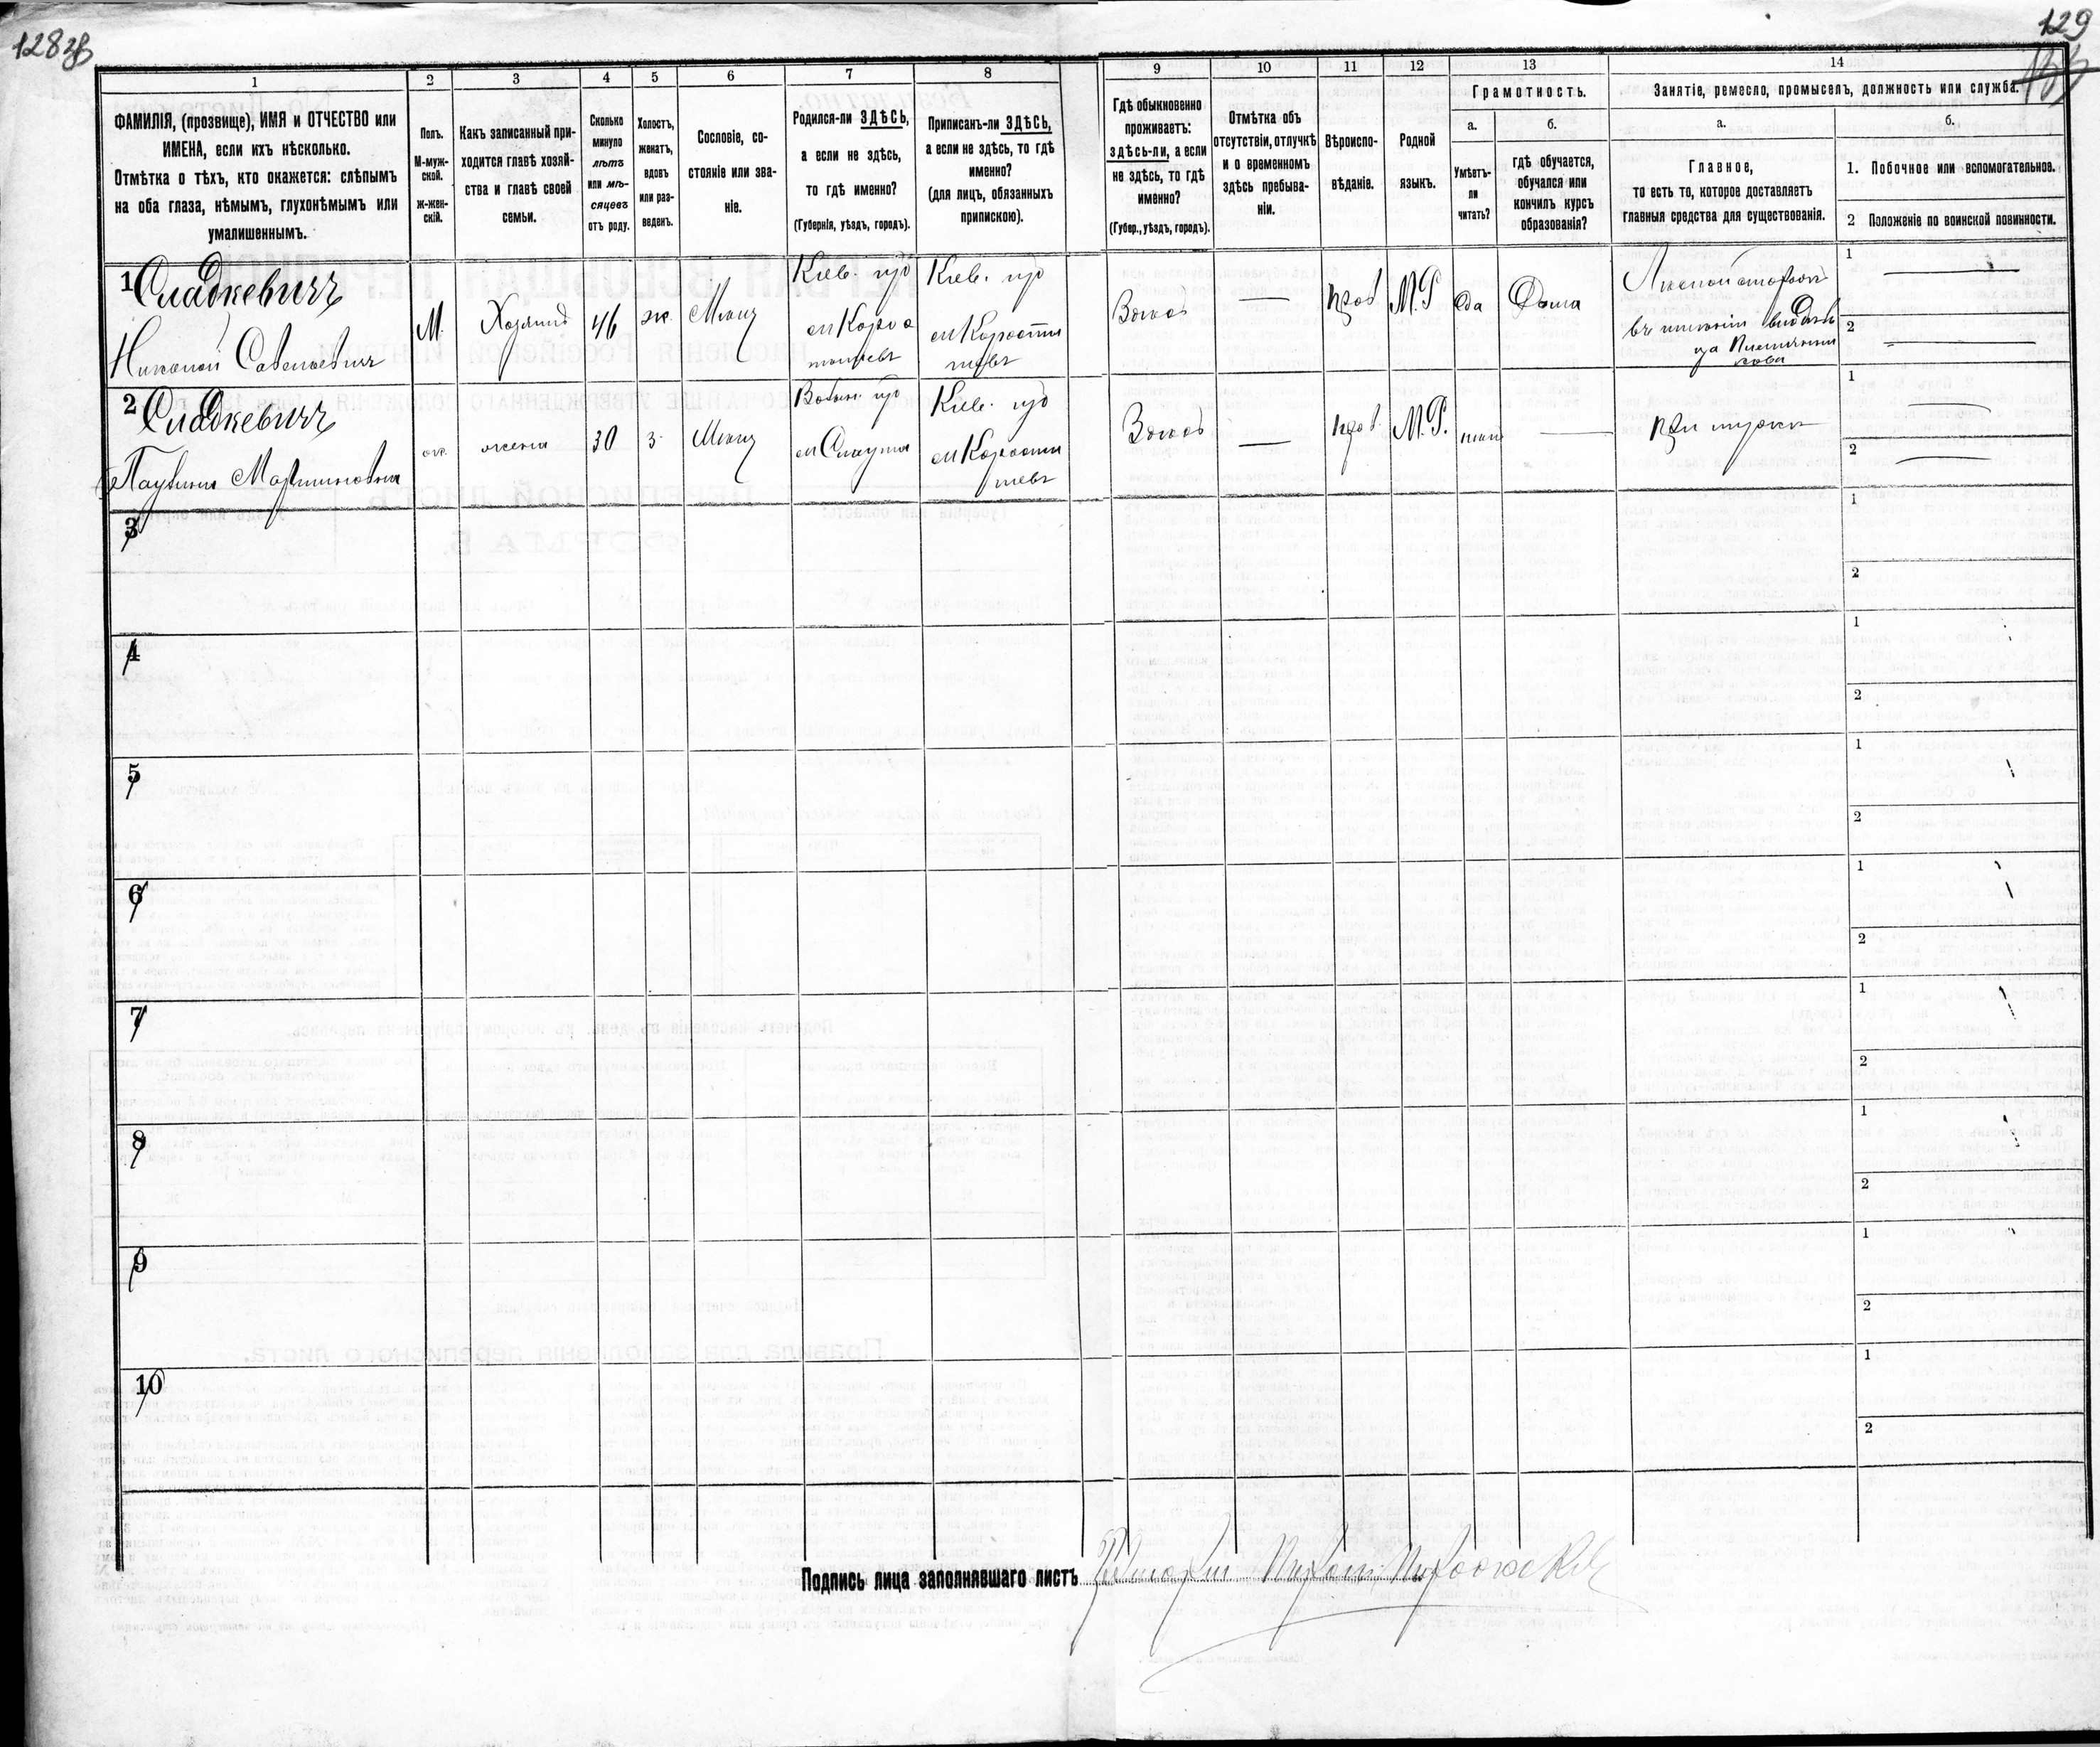 128 зв
129
1
2
3
4
5
6
7
8
9
10
11
12
13
14
ФАМИЛІЯ, (прозвище), ИМЯ и ОТЧЕСТВО или
ИМЕНА, если ихъ нѣсколько.
Отмѣтка о тѣхъ, кто окажется: слѣпымъ
на оба глаза, нѣмымъ, глухонѣмымъ или
умалишеннымъ.
Полъ.
М-муж-
ской.
ж-жен-
скій.
Какъ записанный при-
ходится главѣ хозяй-
ства и главѣ своей
семьи.
Сколько
минуло
лѣтъ
или мѣ-
сяцевъ
отъ роду.
Холостъ,
женатъ,
вдовъ
или раз-
веденъ.
Сословіе, со-
стояніе или зва-
ніе.
Родился-ли ЗДѢСЬ,
а если не здѣсь,
то гдѣ именно?
(Губернія, уѣздъ, городъ).
Приписанъ-ли ЗДѢСЬ,
а если не здѣсь, то гдѣ
именно?
(для лицъ, обязанныхъ
припискою).
Гдѣ обыкновенно
проживаетъ:
здѣсь-ли, а если
не здѣсь, то гдѣ
именно?
(Губер., уѣздъ, городъ).
Отмѣтка объ
отсутствіи, отлучкѣ
и о временномъ
здѣсь пребыва-
ніи.
Вѣроиспо-
вѣданіе.
Родной
языкъ.
Грамотность.
а.
Умѣетъ-
ли
читать?
б.
гдѣ обучается,
обучался или
кончилъ курсъ
образованія?
Занятіе, ремесло, промыселъ, должность или служба.
а.
Главное,
то есть то, которое доставляетъ
главныя средства для существованія.
б.
1. Побочное или вспомогательное.
2 Положеніе по воинской повинности.
1
Сладкевичъ
Николай Савельевичъ
М.
Хозяинъ
46
ж.
Мѣщ
Кіев. губ
м Коро
стишевъ
Кіев. губ
м Корости
шевъ
—
прав
М.Р
да
Дома
въ имѣніи
1
—
2
—
2
Сладкевичъ
Мартиновна
ж.
жена
30
з.
Мѣщ
Волын. губ
м Славута
Кіев. губ
м Корости
шевъ
—
прав.
М.Р.
—
при мужѣ
1
—
2
—
3
1
2
4
1
2
5
1
2
6
1
2
7
1
2
8
1
2
9
1
2
10
1
2
Подпись лица заполнявшаго листъ